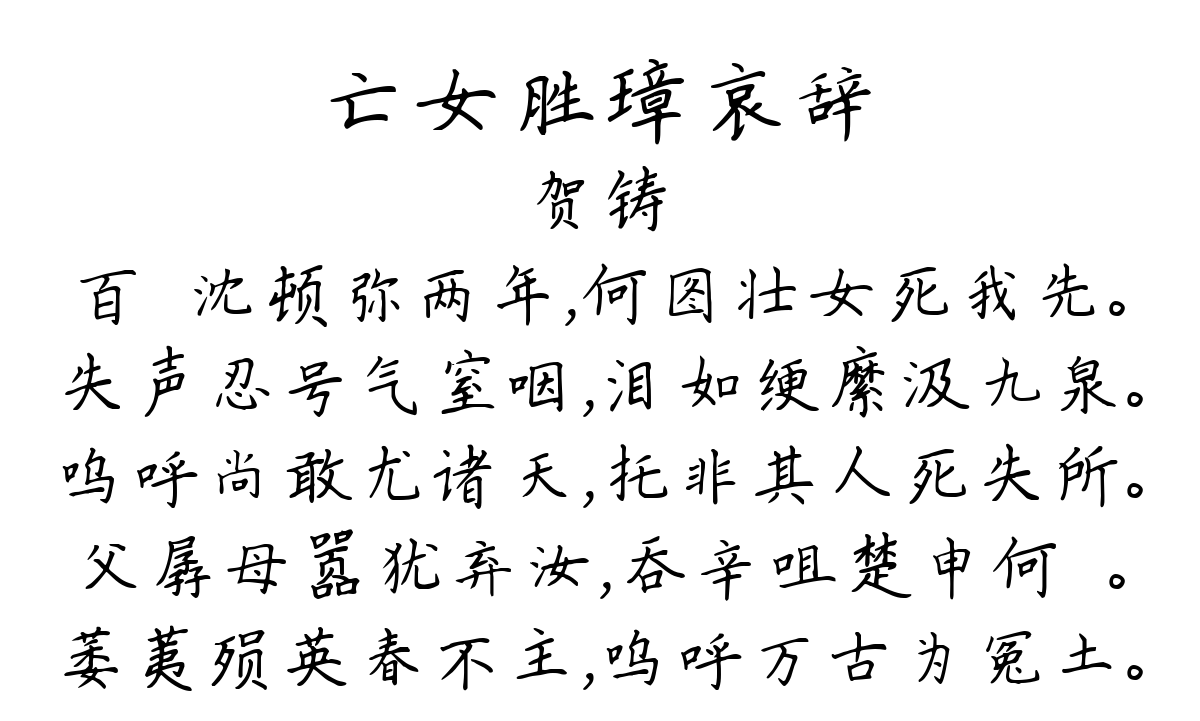 亡女胜璋哀辞
贺铸
百 沈顿弥两年,何图壮女死我先。
失声忍号气窒咽,泪如绠縻汲九泉。
呜呼尚敢尤诸天,托非其人死失所。
父孱母嚣犹弃汝,吞辛咀楚申何 。
萎荑殒英春不主,呜呼万古为冤土。